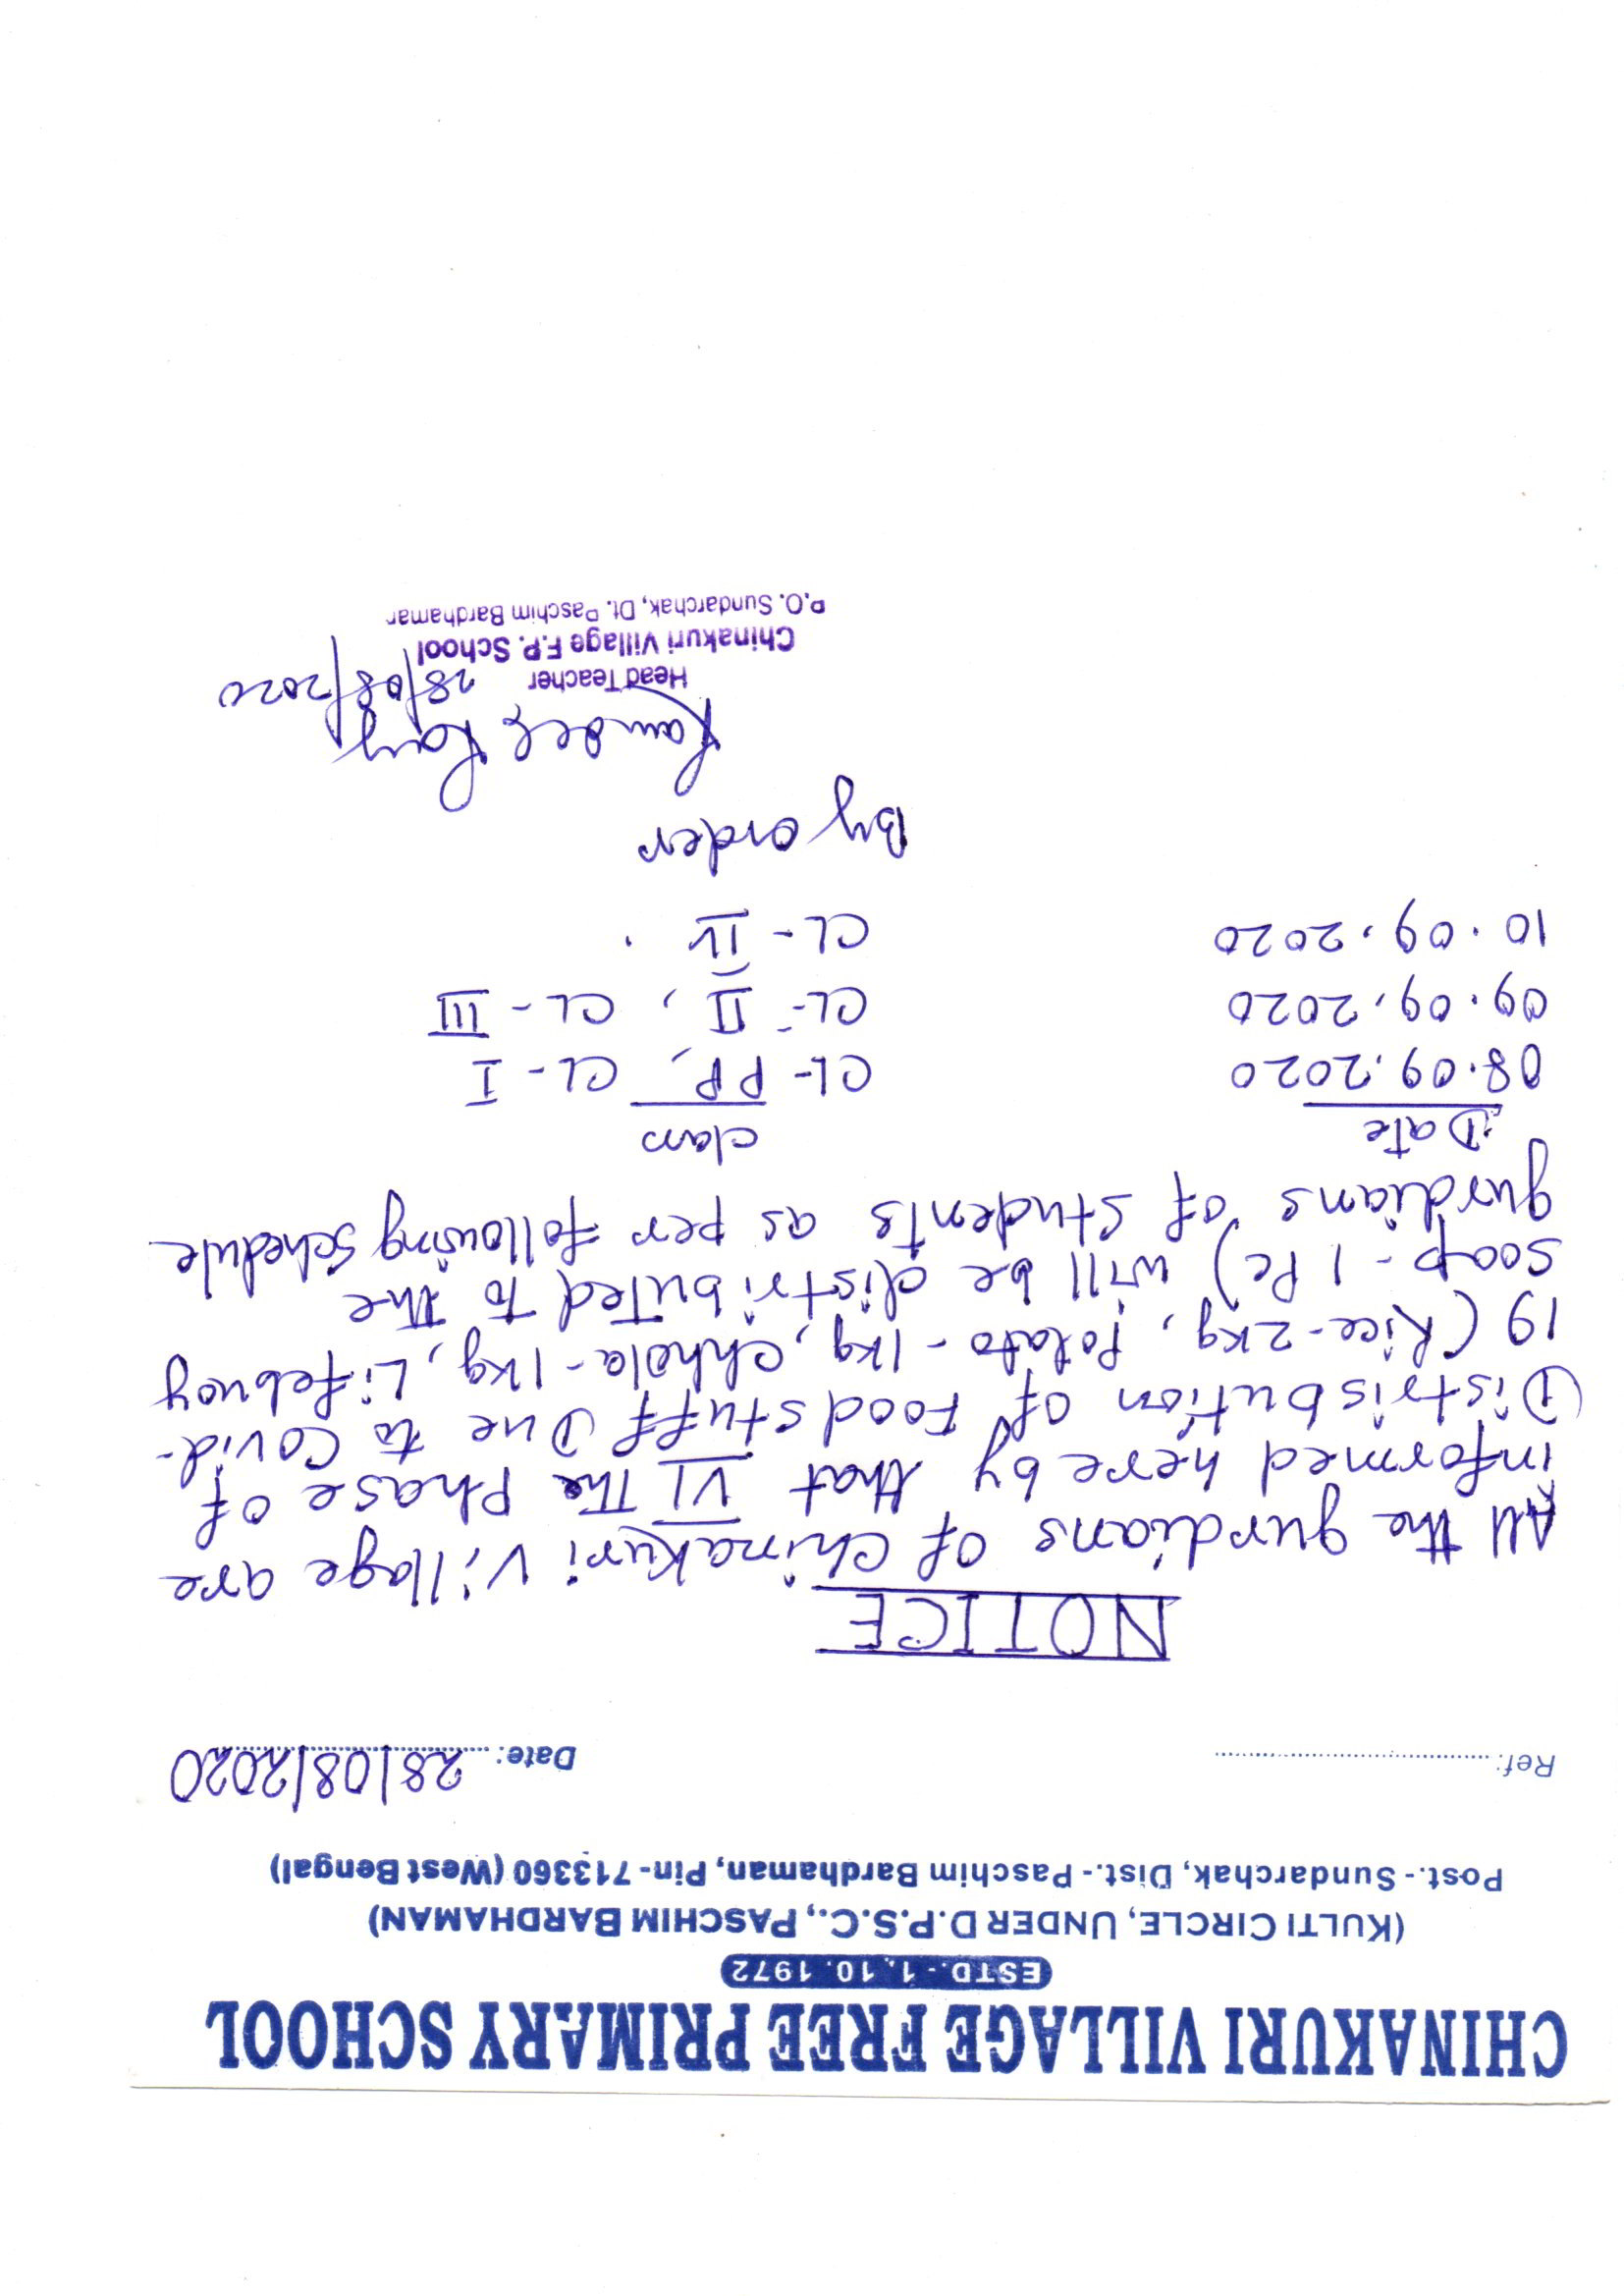 CHINAKURI VILLAGE FREE PRIMARY SCHOOL
ESTD.- 1. 10. 1972
(KULTI CIRCLE, UNDER D.P.S.C., PASCHIM BARDHAMAN)
Post.- Sundarchak, Dist.- Paschim Bardhaman, Pin- 713360 (West Bengal)
Ref: Date: 28/08/2020
NOTICE
All the gurdians of Chinakuri Village are
informed here by that VI The Phase of
Distrisbution of Food stuff Due to Covid-
19 (Rice-2kg, Potato-1kg, Chhola-1kg, Lifebuoy
soap-1Pc) will be distributed to the
gurdians of students as per following schedule
Date class
08.09.2020 CL- PP, CL- I
09.09.2020 CL- II, CL- III
10.09.2020 CL- IV.
By order
28/08/2020
Head Teacher
Chinakuri Village F.P. School
P.O. Sundarchak, Dt. Paschim Bardhaman